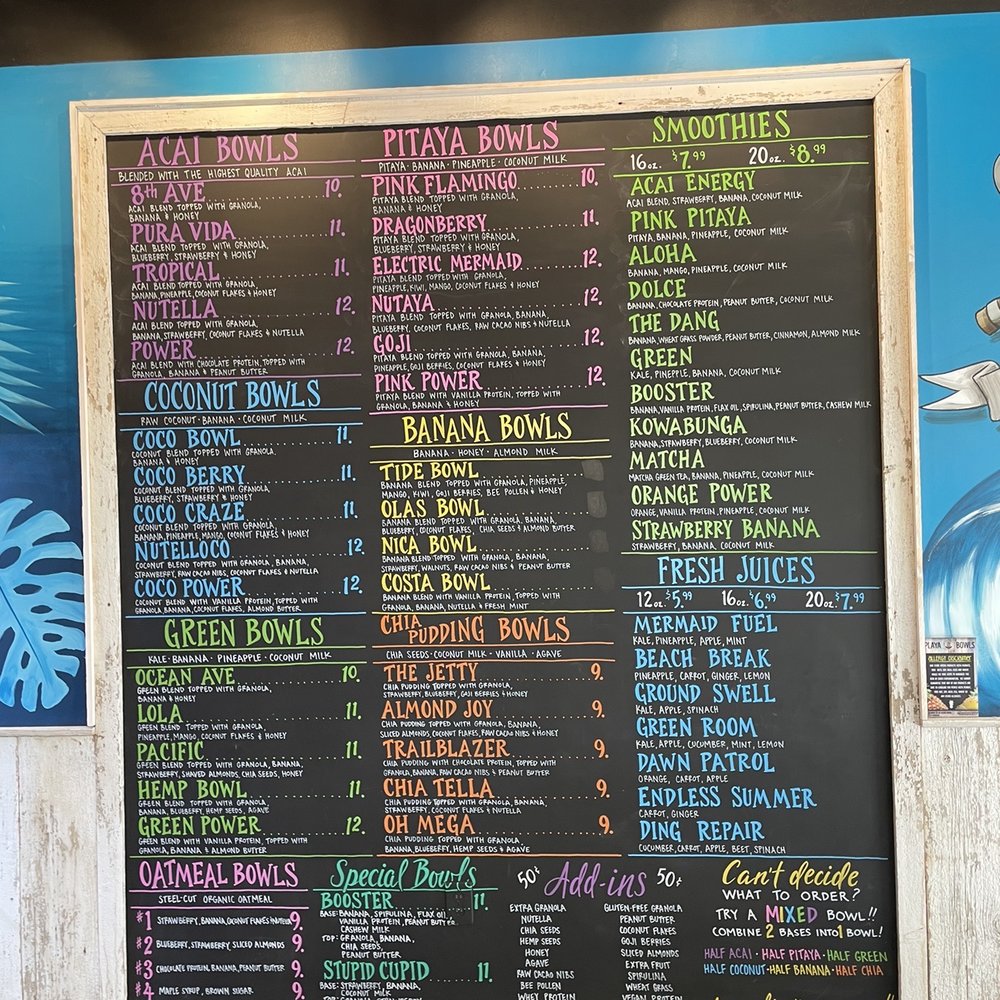 ACAI BOWLS
BLENDED WITH THE HIGHEST QUALITY ACAI
8th AVE 10.
ACAI BLEND TOPPED WITH GRANOLA,
BANANA & HONEY
PURA VIDA 11.
ACAI BLEND TOPPED WITH GRANOLA,
BLUEBERRY, STRAWBERRY & HONEY
TROPICAL 11.
ACAI BLEND TOPPED WITH GRANOLA,
BANANA, PINEAPPLE, COCONUT FLAKES & HONEY
NUTELLA 12.
ACAI BLEND TOPPED WITH GRANOLA,
BANANA, STRAWBERRY, COCONUT FLAKES & NUTELLA
POWER 12.
ACAI BLEND WITH CHOCOLATE PROTEIN, TOPPED WITH
GRANOLA, BANANA & PEANUT BUTTER
COCONUT BOWLS
RAW COCONUT · BANANA · COCONUT MILK
COCO BOWL 11.
COCONUT BLEND TOPPED WITH GRANOLA,
BANANA & HONEY
COCO BERRY 11.
COCONUT BLEND TOPPED WITH GRANOLA,
BLUEBERRY, STRAWBERRY & HONEY
COCO CRAZE 11.
COCONUT BLEND TOPPED WITH GRANOLA,
BANANA, PINEAPPLE, MANGO, COCONUT FLAKES & HONEY
NUTELLOCO 12.
COCONUT BLEND TOPPED WITH GRANOLA, BANANA,
STRAWBERRY, RAW CACAO NIBS, COCONUT FLAKES & NUTELLA
COCO POWER 12.
COCONUT BLEND WITH VANILLA PROTEIN, TOPPED WITH
GRANOLA, BANANA, COCONUT FLAKES, ALMOND BUTTER
GREEN BOWLS
KALE · BANANA · PINEAPPLE · COCONUT MILK
OCEAN AVE 10.
GREEN BLEND TOPPED WITH GRANOLA,
BANANA & HONEY
LOLA 11.
GREEN BLEND TOPPED WITH GRANOLA
PINEAPPLE, MANGO, COCONUT FLAKES & HONEY
PACIFIC 11.
GREEN BLEND TOPPED WITH GRANOLA, BANANA,
STRAWBERRY, SHAVED ALMONDS, CHIA SEEDS, HONEY
HEMP BOWL 11.
GREEN BLEND TOPPED WITH GRANOLA,
BANANA, BLUEBERRY, HEMP SEEDS, AGAVE
GREEN POWER 12.
GREEN BLEND WITH VANILLA PROTEIN, TOPPED WITH
GRANOLA, BANANA & ALMOND BUTTER
OATMEAL BOWLS
STEEL-CUT ORGANIC OATMEAL
#1 STRAWBERRY, BANANA, COCONUT FLAKES & NUTELLA 9.
#2 BLUEBERRY, STRAWBERRY SLICED ALMONDS 9.
#3 CHOCOLATE PROTEIN, BANANA, PEANUT BUTTER 9.
#4 MAPLE SYRUP, BROWN SUGAR 9.
PITAYA BOWLS
PITAYA · BANANA · PINEAPPLE · COCONUT MILK
PINK FLAMINGO 10.
PITAYA BLEND TOPPED WITH GRANOLA,
BANANA & HONEY
DRAGONBERRY 11.
PITAYA BLEND TOPPED WITH GRANOLA,
BLUEBERRY, STRAWBERRY & HONEY
ELECTRIC MERMAID 12.
PITAYA BLEND TOPPED WITH GRANOLA,
PINEAPPLE, KIWI, MANGO, COCONUT FLAKES & HONEY
NUTAYA 12.
PITAYA BLEND TOPPED WITH GRANOLA, BANANA,
BLUEBERRY, COCONUT FLAKES, RAW CACAO NIBS & NUTELLA
GOJI 12.
PITAYA BLEND TOPPED WITH GRANOLA, BANANA,
PINEAPPLE, GOJI BERRIES, COCONUT FLAKES & HONEY
PINK POWER 12.
PITAYA BLEND WITH VANILLA PROTEIN, TOPPED WITH
GRANOLA, BANANA & HONEY
BANANA BOWLS
BANANA · HONEY · ALMOND MILK
TIDE BOWL
BANANA BLEND TOPPED WITH GRANOLA, PINEAPPLE,
MANGO, KIWI, GOJI BERRIES, BEE POLLEN & HONEY
OLAS BOWL
BANANA BLEND TOPPED WITH GRANOLA, BANANA,
BLUEBERRY, COCONUT FLAKES, CHIA SEEDS & ALMOND BUTTER
NICA BOWL
BANANA BLEND TOPPED WITH GRANOLA, BANANA,
STRAWBERRY, WALNUTS, RAW CACAO NIBS & PEANUT BUTTER
COSTA BOWL
BANANA BLEND WITH VANILLA PROTEIN, TOPPED WITH
GRANOLA, BANANA, NUTELLA & FRESH MINT
CHIA PUDDING BOWLS
CHIA SEEDS · COCONUT MILK · VANILLA · AGAVE
THE JETTY 9.
CHIA PUDDING TOPPED WITH GRANOLA,
STRAWBERRY, BLUEBERRY, GOJI BERRIES & HONEY
ALMOND JOY 9.
CHIA PUDDING TOPPED WITH GRANOLA, BANANA,
SLICED ALMONDS, COCONUT FLAKES, RAW CACAO NIBS & HONEY
TRAILBLAZER 9.
CHIA PUDDING WITH CHOCOLATE PROTEIN, TOPPED WITH
GRANOLA, BANANA, RAW CACAO NIBS & PEANUT BUTTER
CHIA TELLA 9.
CHIA PUDDING TOPPED WITH GRANOLA, BANANA,
STRAWBERRY, COCONUT FLAKES & NUTELLA
OH MEGA 9.
CHIA PUDDING TOPPED WITH GRANOLA,
BANANA, BLUEBERRY, HEMP SEEDS & AGAVE
Special Bowls
BOOSTER 11.
BASE: BANANA, SPIRULINA, FLAX OIL,
VANILLA PROTEIN, PEANUT BUTTER
CASHEW MILK
TOP: GRANOLA, BANANA,
CHIA SEEDS,
PEANUT BUTTER
STUPID CUPID 11.
BASE: STRAWBERRY, BANANA,
COCONUT MILK
50¢ Add-ins 50¢
EXTRA GRANOLA
NUTELLA
CHIA SEEDS
HEMP SEEDS
HONEY
AGAVE
RAW CACAO NIBS
BEE POLLEN
WHEY PROTEIN
GLUTEN-FREE GRANOLA
PEANUT BUTTER
COCONUT FLAKES
GOJI BERRIES
SLICED ALMONDS
EXTRA FRUIT
SPIRULINA
WHEAT GRASS
VEGAN PROTEIN
SMOOTHIES
16oz. $7.99 20oz. $8.99
ACAI ENERGY
ACAI BLEND, STRAWBERRY, BANANA, COCONUT MILK
PINK PITAYA
PITAYA, BANANA, PINEAPPLE, COCONUT MILK
ALOHA
BANANA, MANGO, PINEAPPLE, COCONUT MILK
DOLCE
BANANA, CHOCOLATE PROTEIN, PEANUT BUTTER, COCONUT MILK
THE DANG
BANANA, WHEAT GRASS POWDER, PEANUT BUTTER, CINNAMON, ALMOND MILK
GREEN
KALE, PINEPPLE, BANANA, COCONUT MILK
BOOSTER
BANANA, VANILLA PROTEIN, FLAX OIL, SPIRULINA, PEANUT BUTTER, CASHEW MILK
KOWABUNGA
BANANA, STRAWBERRY, BLUEBERRY, COCONUT MILK
MATCHA
MATCHA GREEN TEA, BANANA, PINEAPPLE, COCONUT MILK
ORANGE POWER
ORANGE, VANILLA PROTEIN, PINEAPPLE, COCONUT MILK
STRAWBERRY BANANA
STRAWBERRY, BANANA, COCONUT MILK
FRESH JUICES
12oz. $5.99 16oz. $6.99 20oz. $7.99
MERMAID FUEL
KALE, PINEAPPLE, APPLE, MINT
BEACH BREAK
PINEAPPLE, CARROT, GINGER, LEMON
GROUND SWELL
KALE, APPLE, SPINACH
GREEN ROOM
KALE, APPLE, CUCUMBER, MINT, LEMON
DAWN PATROL
ORANGE, CARROT, APPLE
ENDLESS SUMMER
CARROT, GINGER
DING REPAIR
CUCUMBER, CARROT, APPLE, BEET, SPINACH
Can't decide
WHAT TO ORDER?
TRY A MIXED BOWL!!
COMBINE 2 BASES INTO 1 BOWL!
HALF ACAI · HALF PITAYA · HALF GREEN
HALF COCONUT · HALF BANANA · HALF CHIA
PLAYA BOWLS